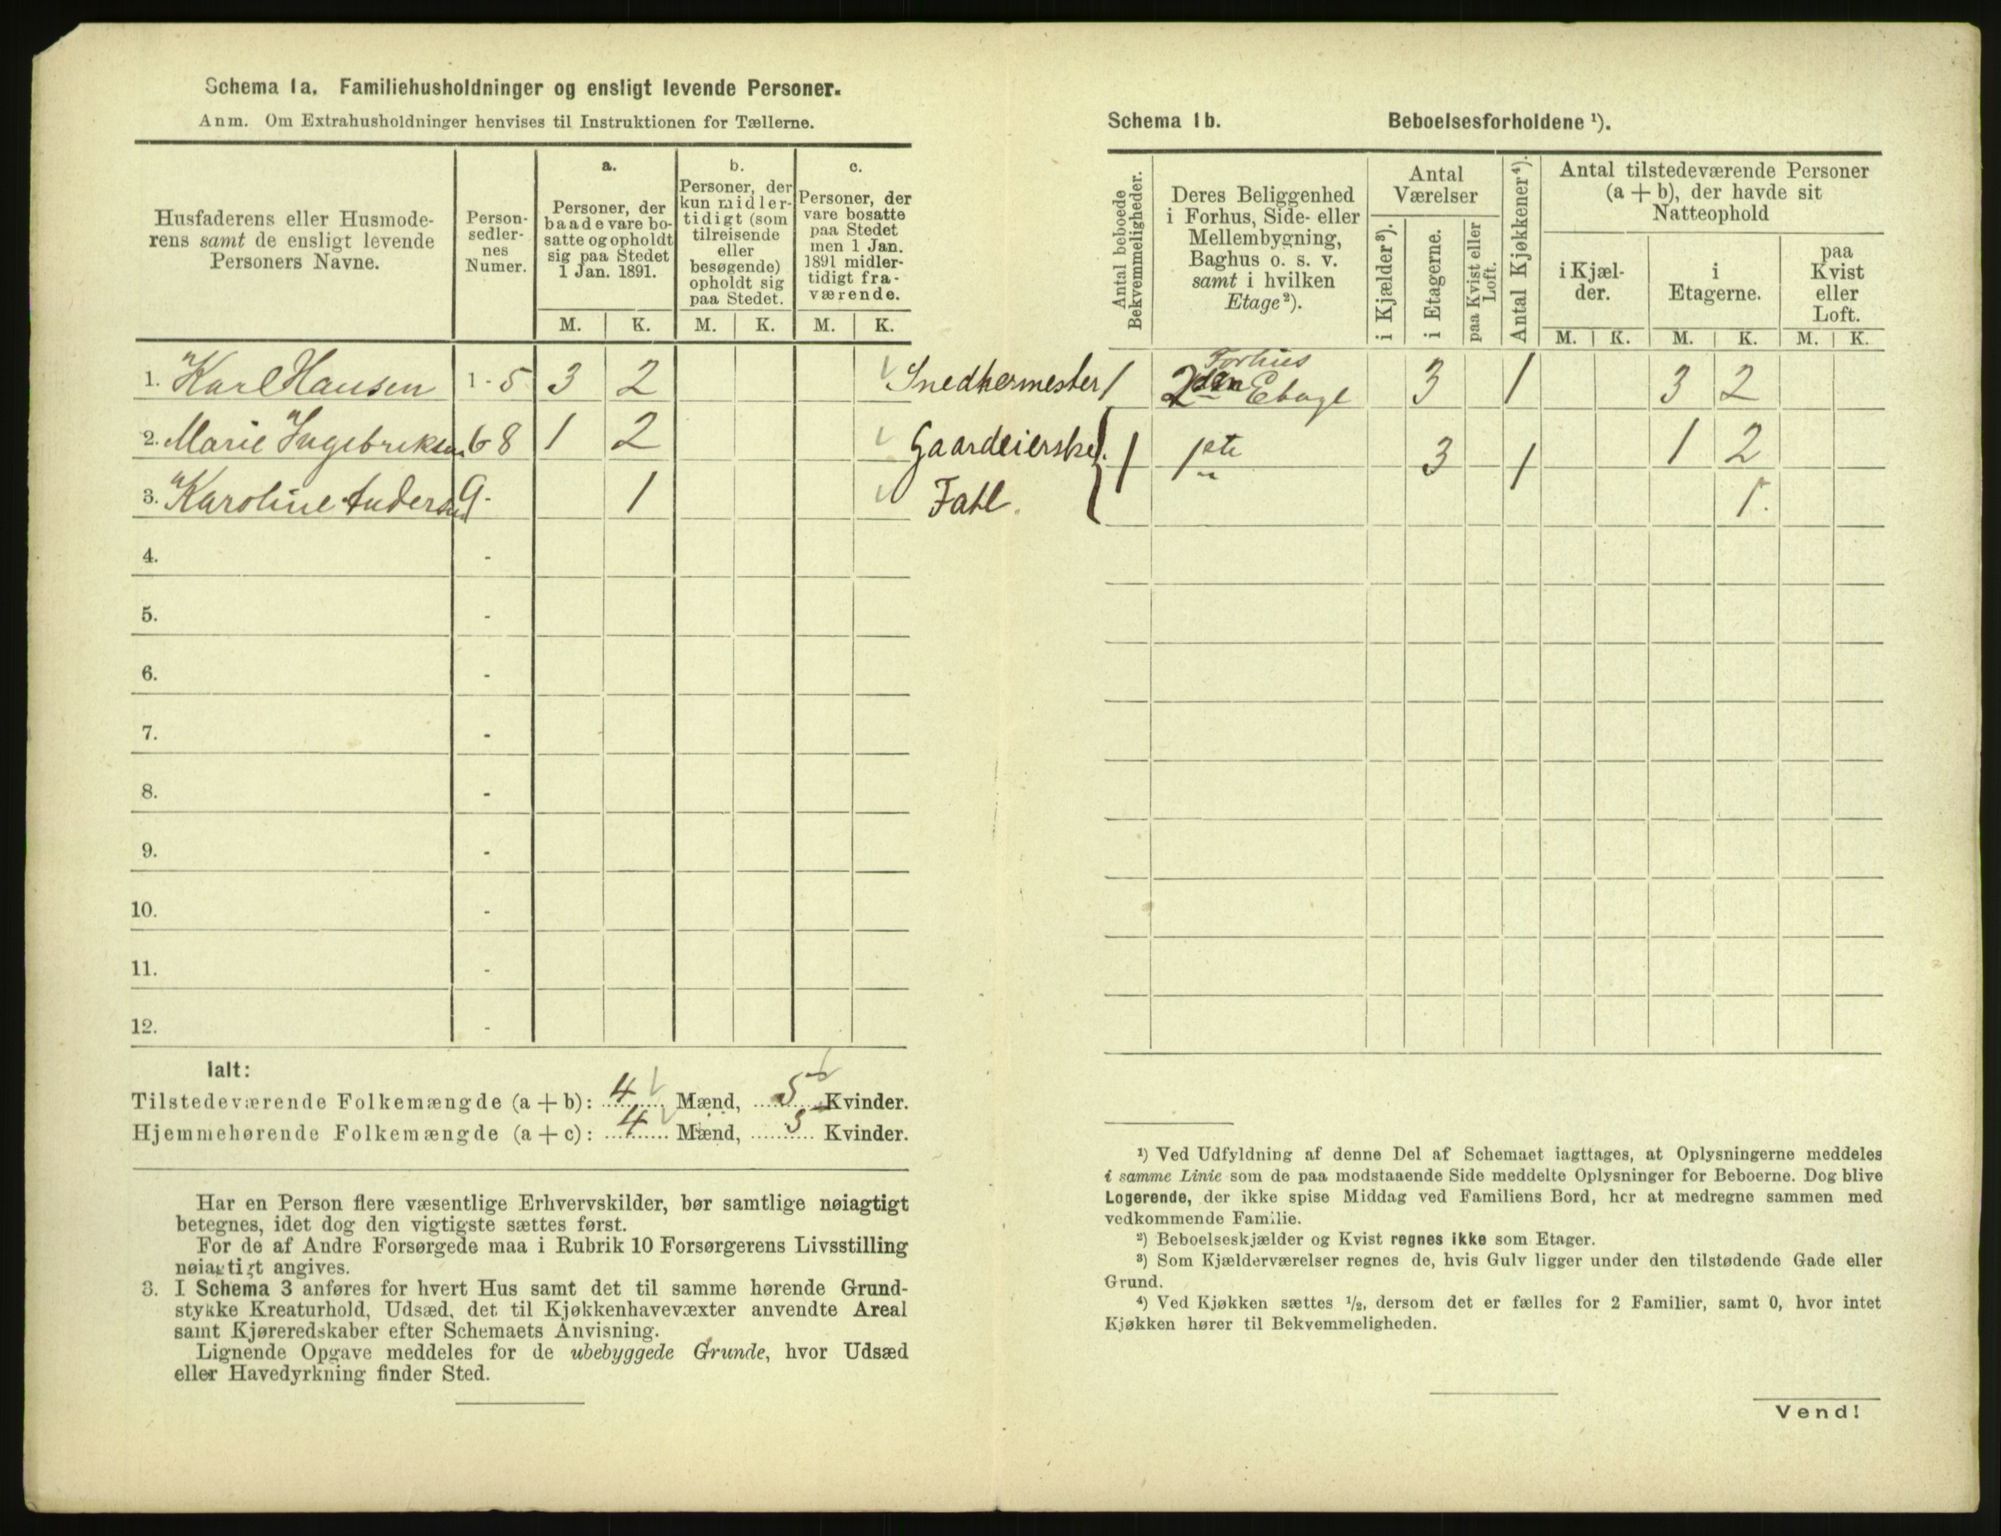 Schema 1a. Familiehusholdninger og ensligt levende Personer.
Anm. Om Extrahusholdninger henvises til Instruktionen for Tællerne.
Husfaderens eller Husmode-
rens samt de ensligt levende
Personers Navne.
Person-
sedler-
nes
Numer.
a.
Personer, der
baade vare bo-
satte og opholdt
sig paa Stedet
1 Jan. 1891.
b.
Personer, der
kun midler-
tidigt (som
tilreisende
eller
besøgende)
opholdt sig
paa Stedet.
c.
Personer, der
vare bosatte
paa Stedet
men 1 Jan.
1891 midler-
tidigt fra-
værende.
M. K. M. K. M. K.
1. Karl Hansen 1 - 5 3 2 Snedkermester
2. Marie Ingebriksen 6 8 1 2 Gaardeierske
3. Karoline Anders 9 - 1 Fatl.
4. -
5. -
6. -
7. -
8. -
9. -
10. -
11. -
12. -
Ialt:
Tilstedeværende Folkemængde (a + b): 4 Mænd, 5 Kvinder.
Hjemmehørende Folkemængde (a + c): 4 Mænd, 5 Kvinder.
Har en Person flere væsentlige Erhvervskilder, bør samtlige nøiagtigt
betegnes, idet dog den vigtigste sættes først.
For de af Andre Forsørgede maa i Rubrik 10 Forsørgerens Livsstilling
nøiagtigt angives.
3. I Schema 3 anføres for hvert Hus samt det til samme hørende Grund-
stykke Kreaturhold, Udsæd, det til Kjøkkenhavevæxter anvendte Areal
samt Kjøreredskaber efter Schemaets Anvisning.
Lignende Opgave meddeles for de ubebyggede Grunde, hvor Udsæd
eller Havedyrkning finder Sted.
Schema 1b. Beboelsesforholdene ¹).
Antal beboede
Bekvemmeligheder.
Deres Beliggenhed
i Forhus, Side- eller
Mellembygning,
Baghus o. s. v.
samt i hvilken
Etage²).
Antal
Værelser
i Kjælder³).
i Etagerne.
paa Kvist eller
Loft.
Antal Kjøkkener⁴).
Antal tilstedeværende Personer
(a + b), der havde sit
Natteophold
i Kjæl-
der.
i
Etagerne.
paa
Kvist
eller
Loft.
M. K. M. K. M. K.
Forhus
1 2den Etage 3 1 3 2
1 1ste 3 1 1 2
1.
¹) Ved Udfyldning af denne Del af Schemaet iagttages, at Oplysningerne meddeles
i samme Linie som de paa modstaaende Side meddelte Oplysninger for Beboerne. Dog blive
Logerende, der ikke spise Middag ved Familiens Bord, her at medregne sammen med
vedkommende Familie.
²) Beboelseskjælder og Kvist regnes ikke som Etager.
³) Som Kjælderværelser regnes de, hvis Gulv ligger under den tilstødende Gade eller
Grund.
⁴) Ved Kjøkken sættes ¹/₂, dersom det er fælles for 2 Familier, samt 0, hvor intet
Kjøkken hører til Bekvemmeligheden.
Vend!